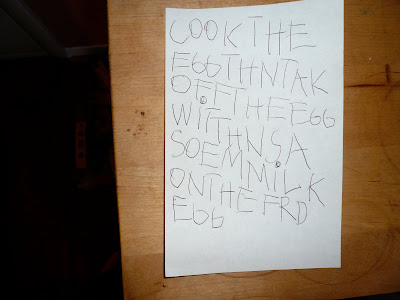 COOK THE
EGG THN TAK
OFF THE EGG
WIT THN SA
SOEM MILK
ON THE FRD
EGG